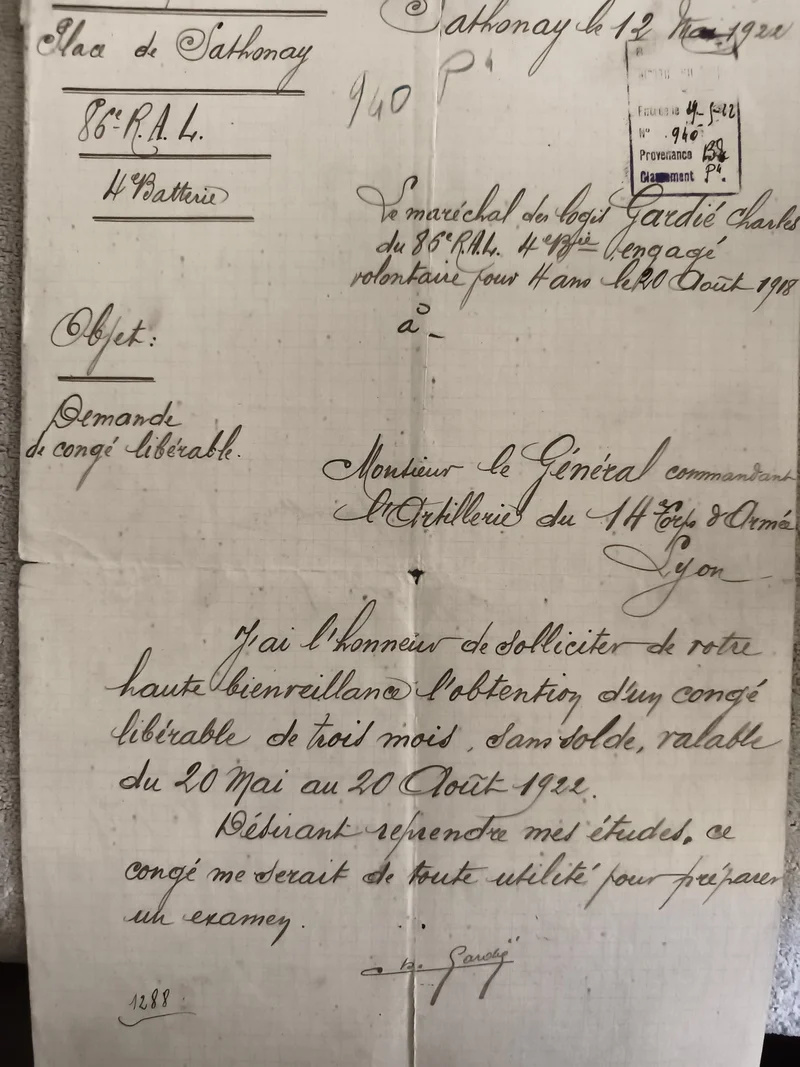 Place de Sathonay
86e R.A.L.
4e Batterie
Sathonay le 12 Mai 1922
940 Pt
Entrée le 19-5-22
N° 940
Provenance
Classement Pt.
Le maréchal des logis Gardié Charles
du 86e R.A.L. 4e Bie engagé
volontaire pour 4 ans le 20 Août 1918
à
Objet:
Demande
de congé libérable.
Monsieur le Général commandant
l'Artillerie du 14e Corps d'Armée
Lyon
J'ai l'honneur de solliciter de votre
haute bienveillance l'obtention d'un congé
libérable de trois mois, sans solde, valable
du 20 Mai au 20 Août 1922.
Désirant reprendre mes études, ce
congé me serait de toute utilité pour préparer
un examen.
Gardié
1288